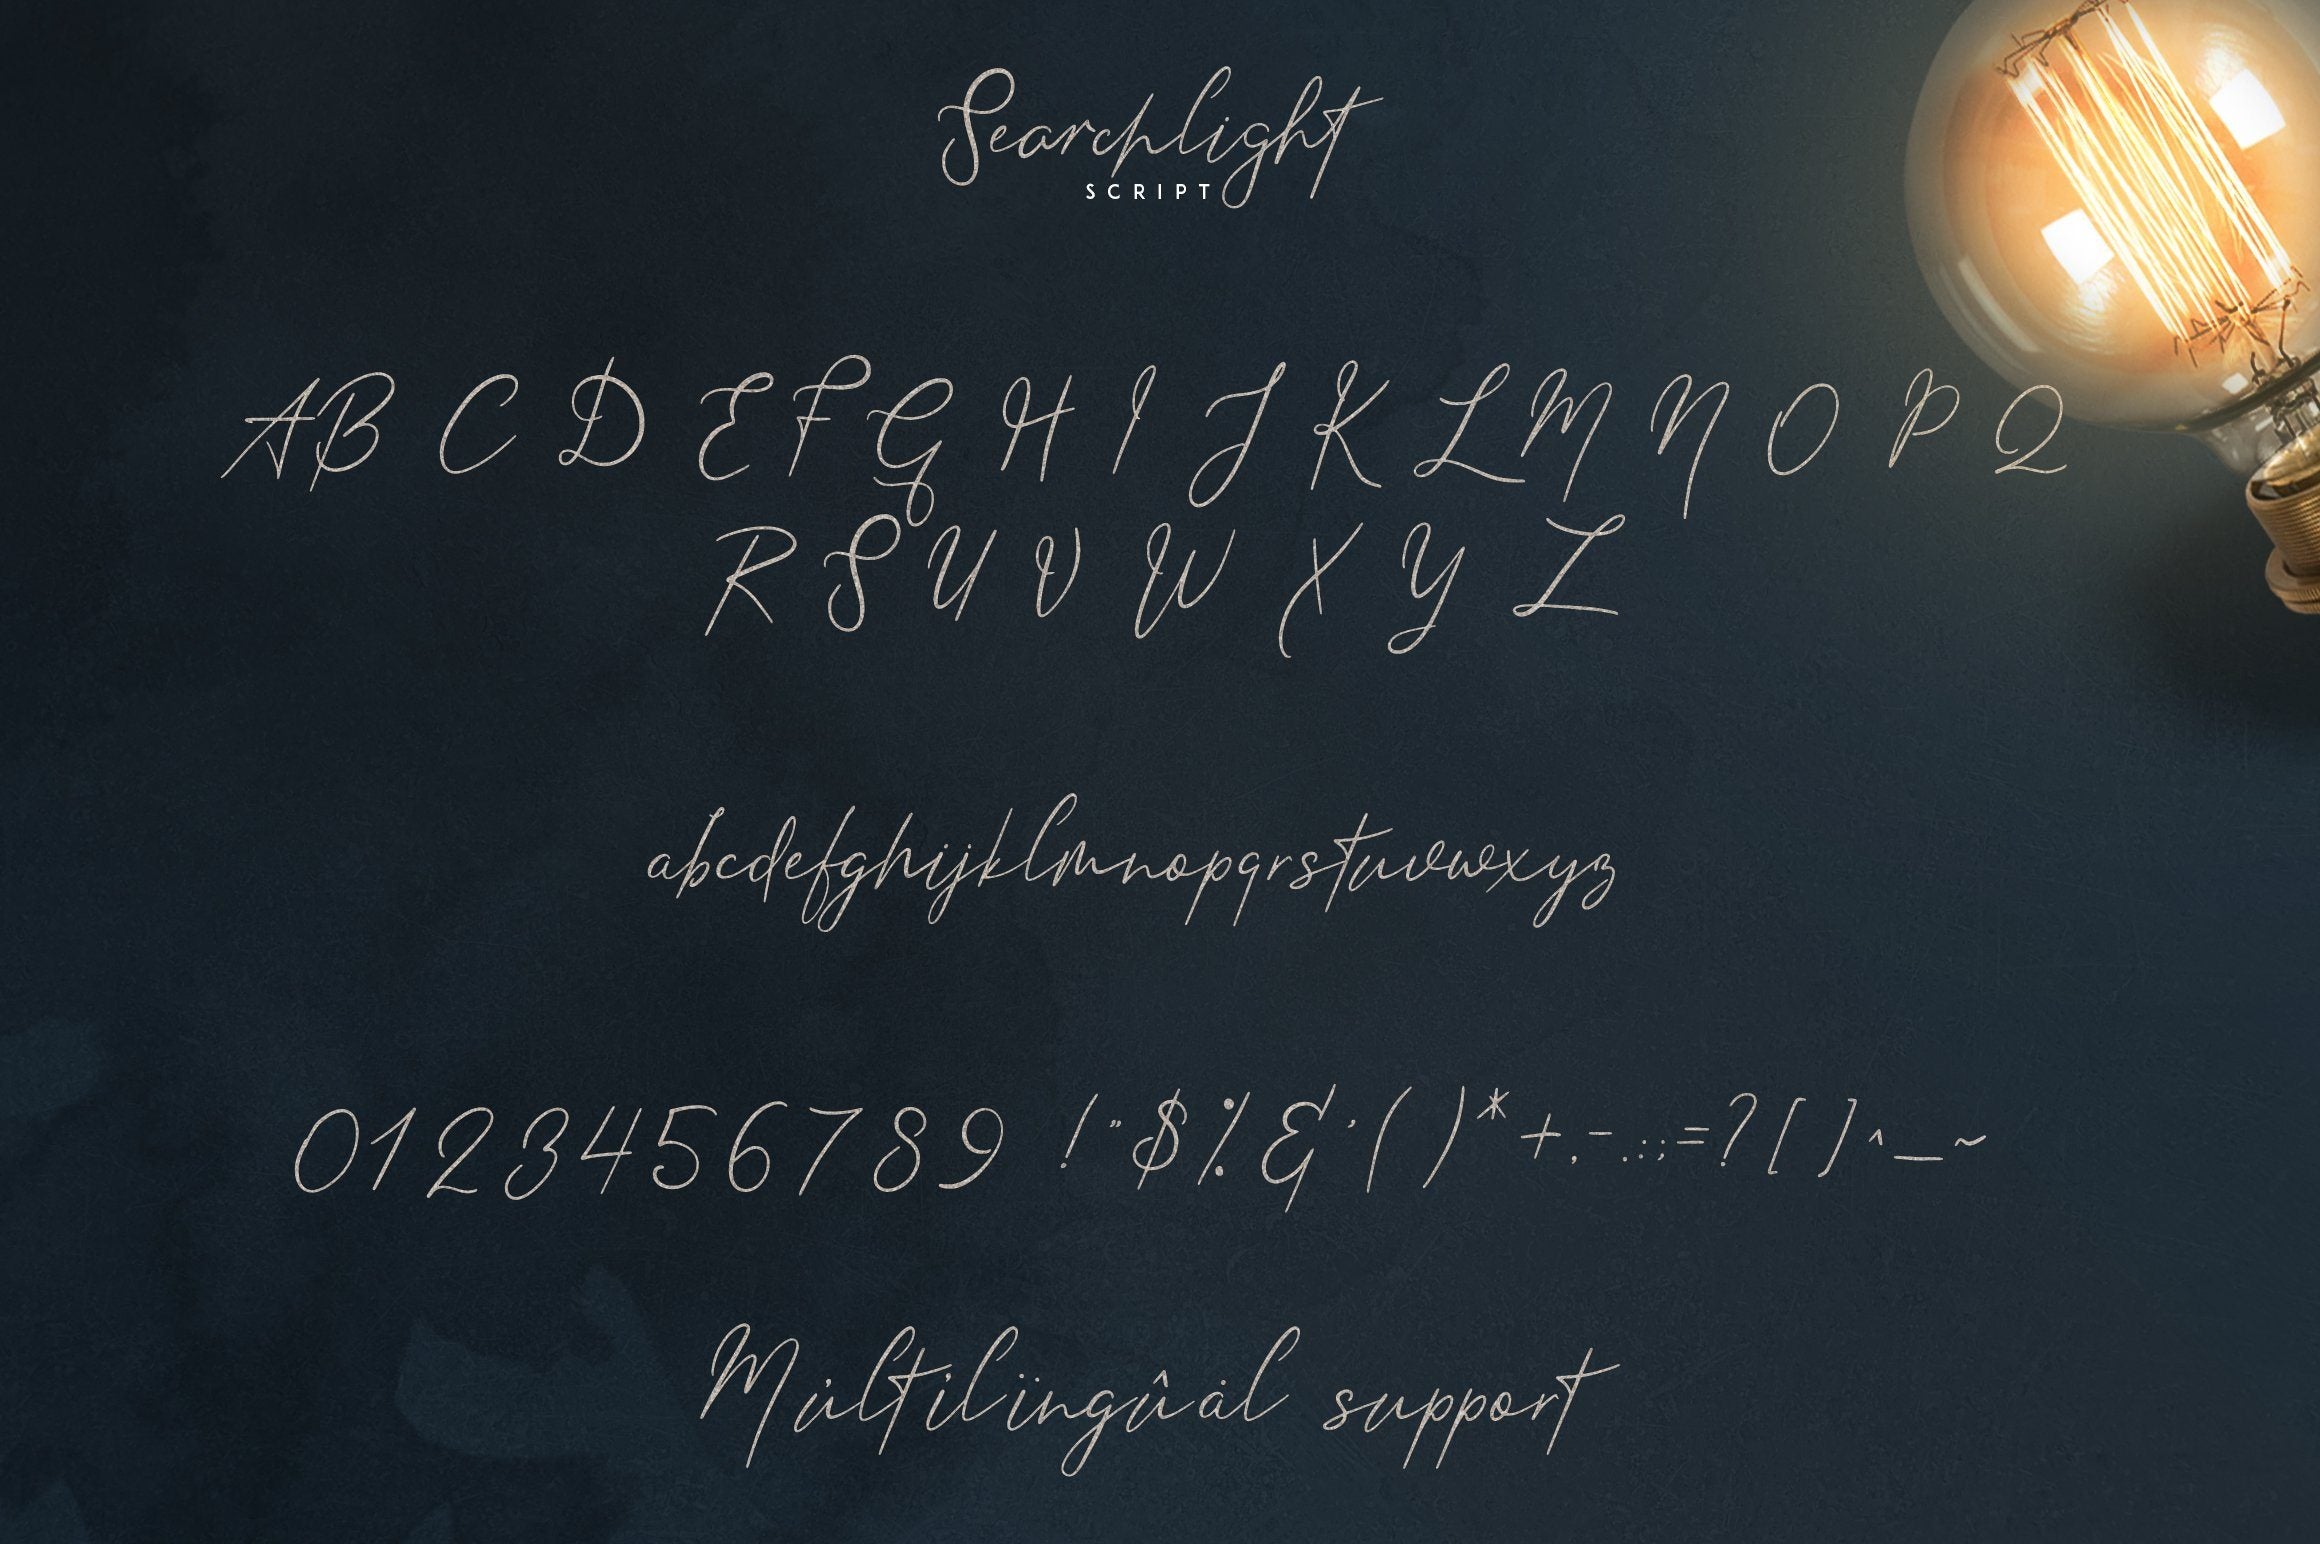 Searchlight
SCRIPT
A B C D E F G H I J K L M N O P Q
R S U V W X Y Z
abcdefghijklmnopqrstuvwxyz
0 1 2 3 4 5 6 7 8 9 ! " $ % & ' ( ) * + , - . : ; = ? [ ] ^ _ ~
Mu̇ltilïngûȧl support